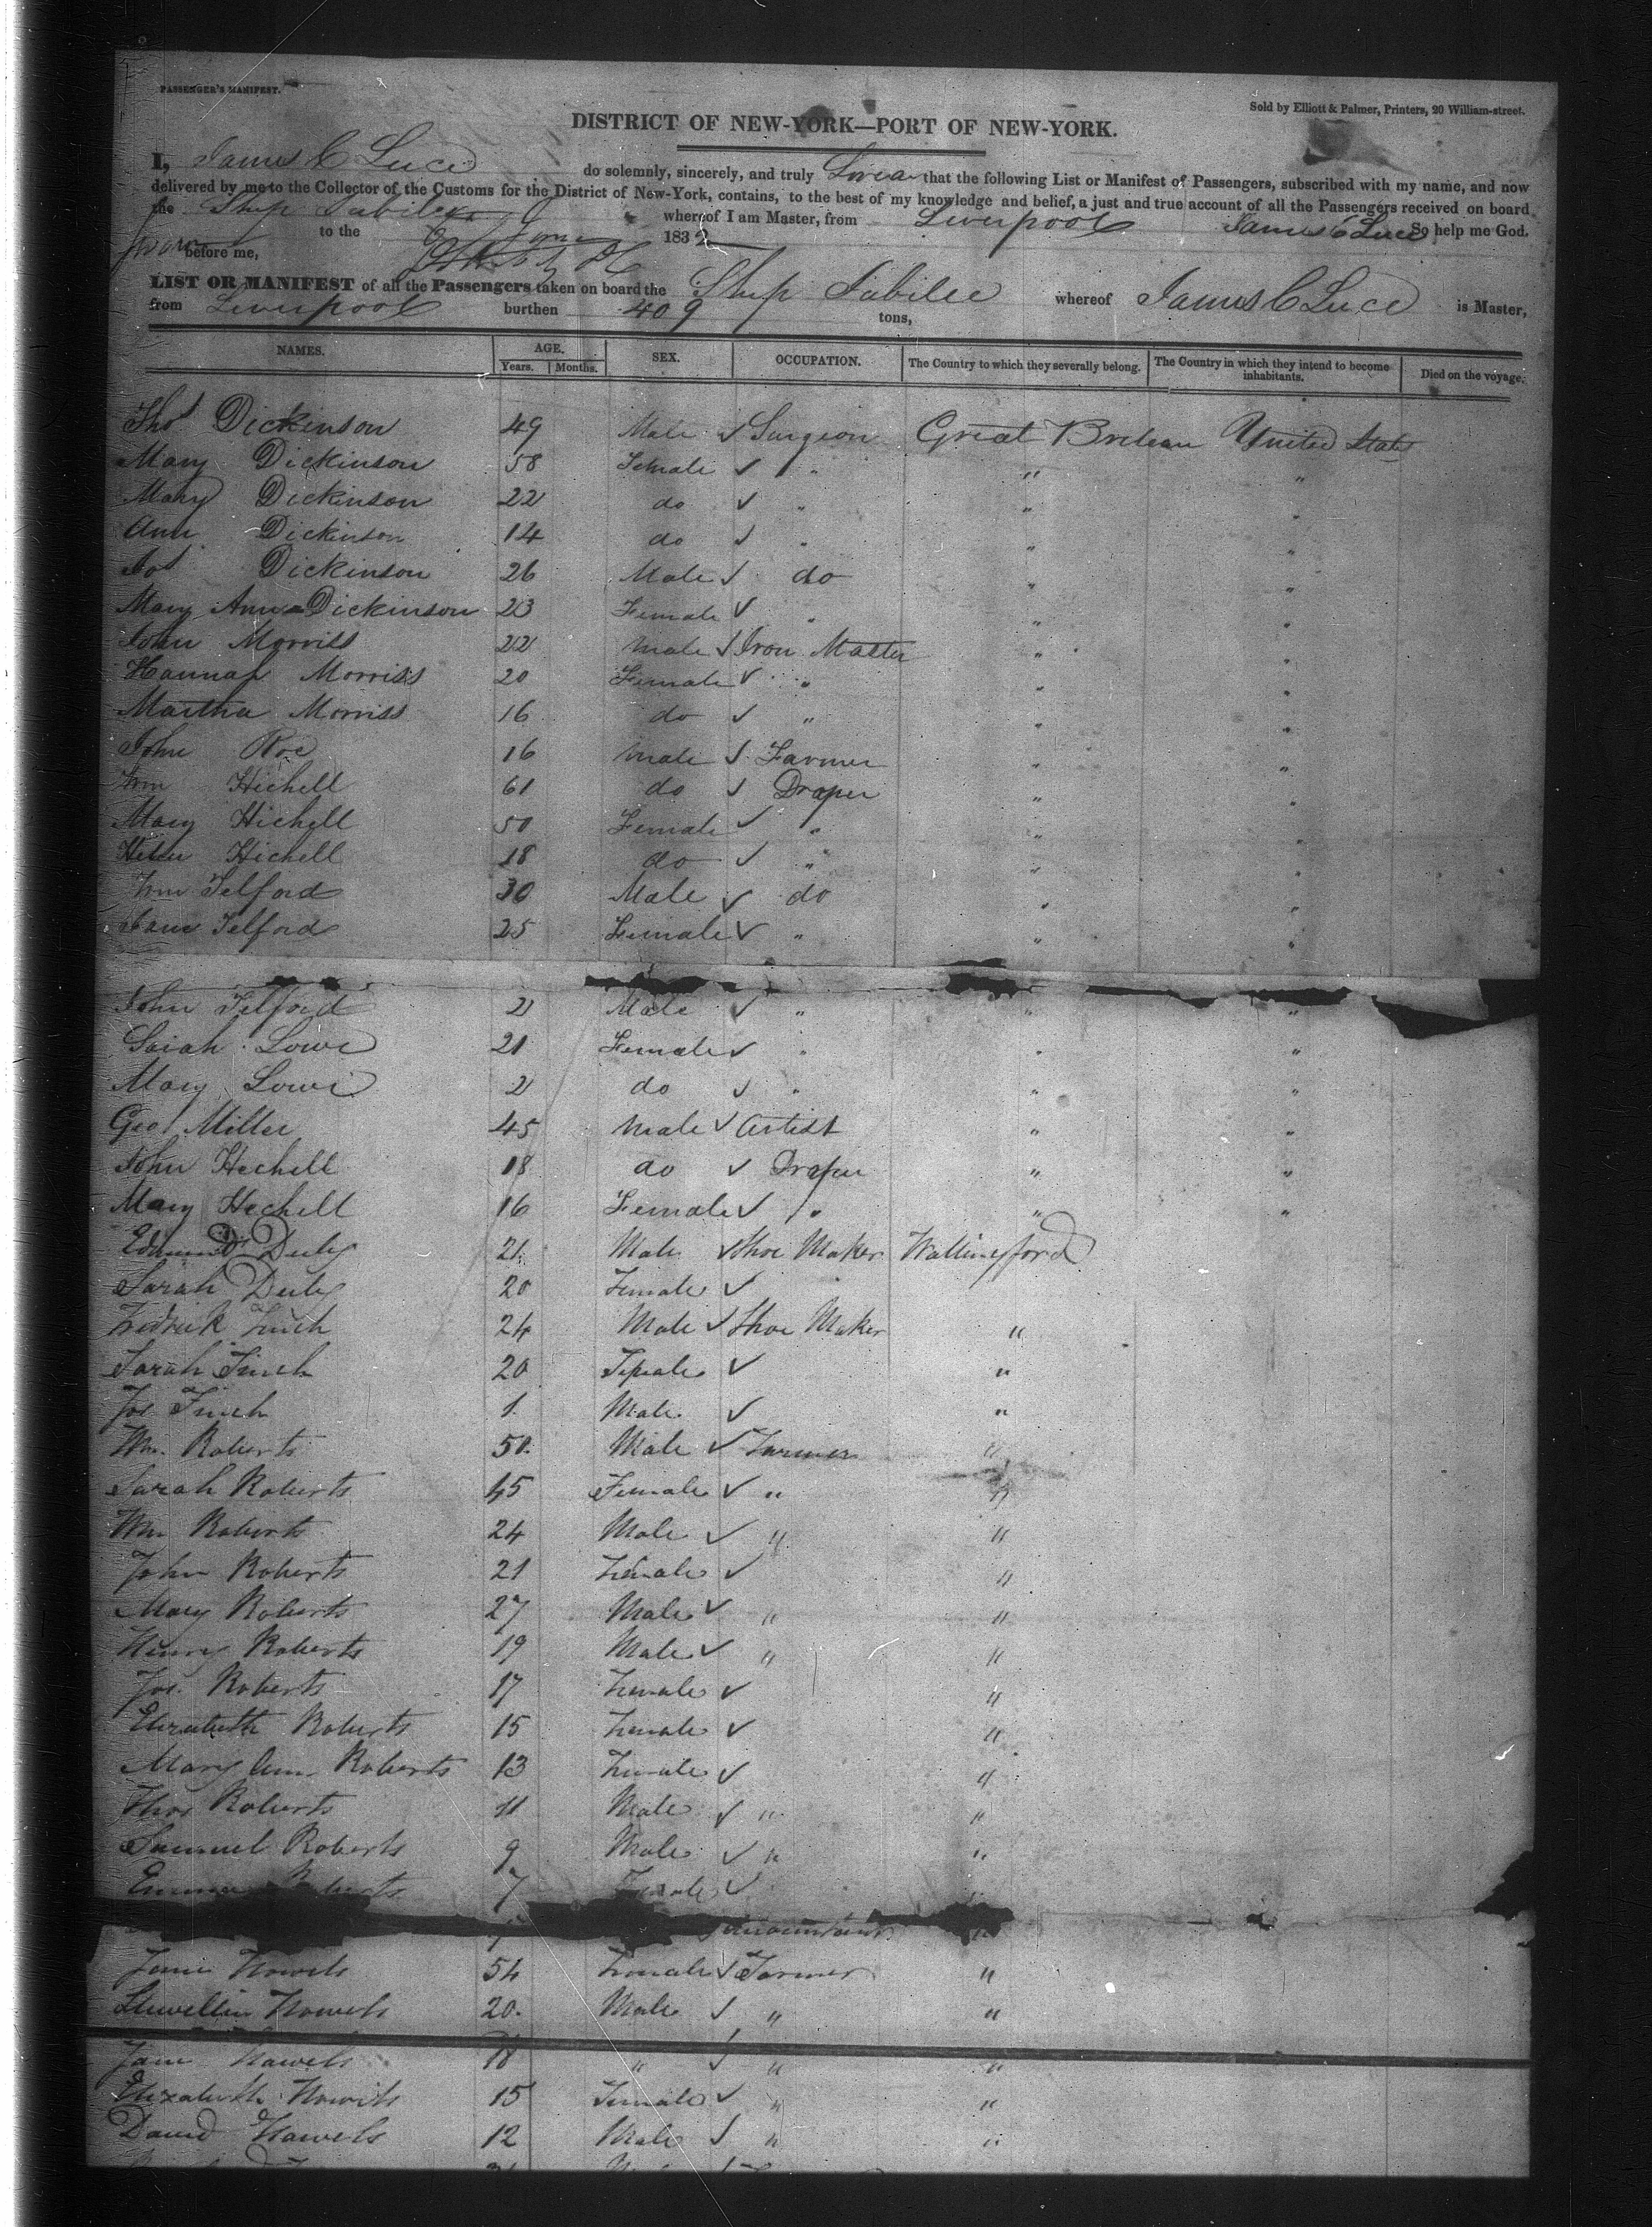 PASSENGER'S MANIFEST.
Sold by Elliott & Palmer, Printers, 20 William-street.
DISTRICT OF NEW-YORK—PORT OF NEW-YORK.
I, James C Luce do solemnly, sincerely, and truly Swear that the following List or Manifest of Passengers, subscribed with my name, and now
delivered by me to the Collector of the Customs for the District of New-York, contains, to the best of my knowledge and belief, a just and true account of all the Passengers received on board
the Ship Jubilee whereof I am Master, from Liverpool James C Luce So help me God.
to the 6 June 1832
Sworn before me,
LIST OR MANIFEST of all the Passengers taken on board the Ship Jubilee whereof James C Luce is Master,
from Liverpool burthen 409 tons,
NAMES. AGE. SEX. OCCUPATION. The Country to which they severally belong. The Country in which they intend to become inhabitants. Died on the voyage.
Years. Months.
Thos Dickinson 49 Male ✓ Surgeon Great Britian United States
Mary Dickinson 58 Female ✓ " " "
Mary Dickinson 22 do ✓ " " "
Ann Dickinson 14 do ✓ " " "
Jos Dickinson 26 Male ✓ do " "
Mary Anna Dickinson 23 Female ✓ " " "
John Morriss 22 male ✓ Iron Master " "
Hannah Morriss 20 Female ✓ " " "
Martha Morriss 16 do ✓ " " "
John Roe 16 male ✓ Farmer " "
Wm Hichell 61 do ✓ Draper " "
Mary Hichell 50 Female ✓ " " "
Helen Hichell 18 do ✓ " " "
Wm Telford 30 Male ✓ do " "
Jane Telford 25 Female ✓ " " "
John Telford 2 Male ✓ " " "
Sarah Lowe 21 Female ✓ " " "
Mary Lowe 2 do ✓ " " "
Geo Miller 45 male ✓ Artist " "
John Hechell 18 do ✓ Draper " "
Mary Hechell 16 Female ✓ " " "
Edmund 21 Male ✓ Shoe Maker Wallingford
Sarah 20 Female ✓
Fredrick Finch 24 Male ✓ Shoe Maker "
Sarah Finch 20 Female ✓ "
Jos Finch 1 Male ✓ "
Wm. Roberts 50 Male ✓ Farmer "
Sarah Roberts 45 Female ✓ " "
Wm Roberts 24 Male ✓ " "
John Roberts 21 Female ✓ "
Mary Roberts 27 Male ✓ " "
Henry Roberts 19 Male ✓ " "
Jos. Roberts 17 Female ✓ "
Elizabeth Roberts 15 Female ✓ "
Mary Ann Roberts 13 Female ✓ "
Thos Roberts 11 Male ✓ " "
Samuel Roberts 9 Male ✓ " "
Emma Roberts 7 Female ✓
"
Jane Howels 54 Female ✓ Farmer "
Llewellin Howels 20 Male ✓ " "
Jane Howels 18 " ✓ " "
Elizabeth Howels 15 Female ✓ " "
David Howels 12 Male ✓ " "